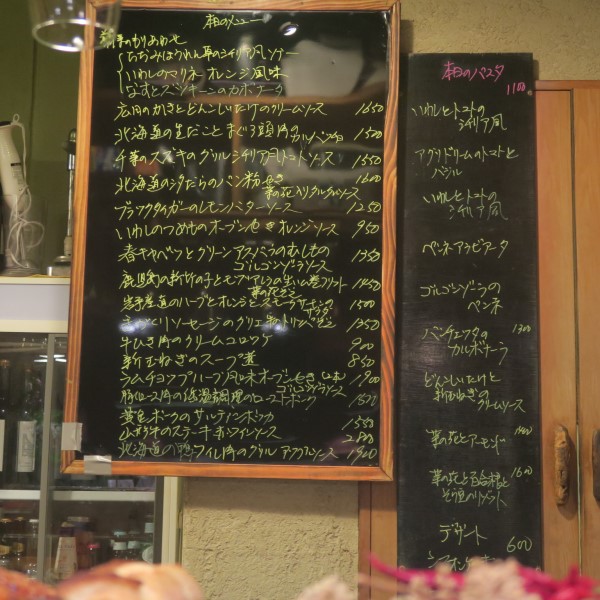 本日のメニュー
前菜のもりあわせ
ちぢみほうれん草のシチリア風ソテー
いわしのマリネ オレンジ風味
なすとズッキーニのカポナータ
広島のかきとどんこしいたけのクリームソース 1650
北海道の真だことまぐろ頭肉のカルパッチョ 1500
千葉のスズキのグリルシチリア風トマトソース 1550
北海道の真だらのパン粉やき 1600
菜の花入り ソース
ブラックタイガーのレモンバターソース 1250
いわしのつめものオーブンやきオレンジソース 950
春キャベツとグリーンアスパラのむしもの 1350
ゴルゴンゾラソース
鹿児島の新竹の子とモッツァレラの生ハム巻フリット 1450
菜の花ゼ
岩手産 のハーブとオレンジとスモークサーモンのサラダ 1500
手づくりソーセージのグリエ 1350
牛ひき肉のクリームコロッケ 900
新玉ねぎのスープ煮 850
ラムチョップハーブ風味オーブンやき 1900
ゴルゴンゾラソース
豚ロース肉の低温調理のローストポーク
ポークのサルティンボッカ 1550
牛のステーキ赤ワインソース 2800
北海道の フィレ肉のグリル ソース 1900
本日のパスタ
1100
いわしとトマトの
シチリア風
アグリドリームのトマトと
バジル
いわしとトマトの
シチリア風
ペンネアラビアータ
ゴルゴンゾラの
ペンネ
パンチェッタの 1300
カルボナーラ
どんこしいたけと
新玉ねぎの
クリームソース
菜の花とアーモンド
菜の花と百合根と 1600
そら豆のリゾット
デザート
600
シフォンケーキ